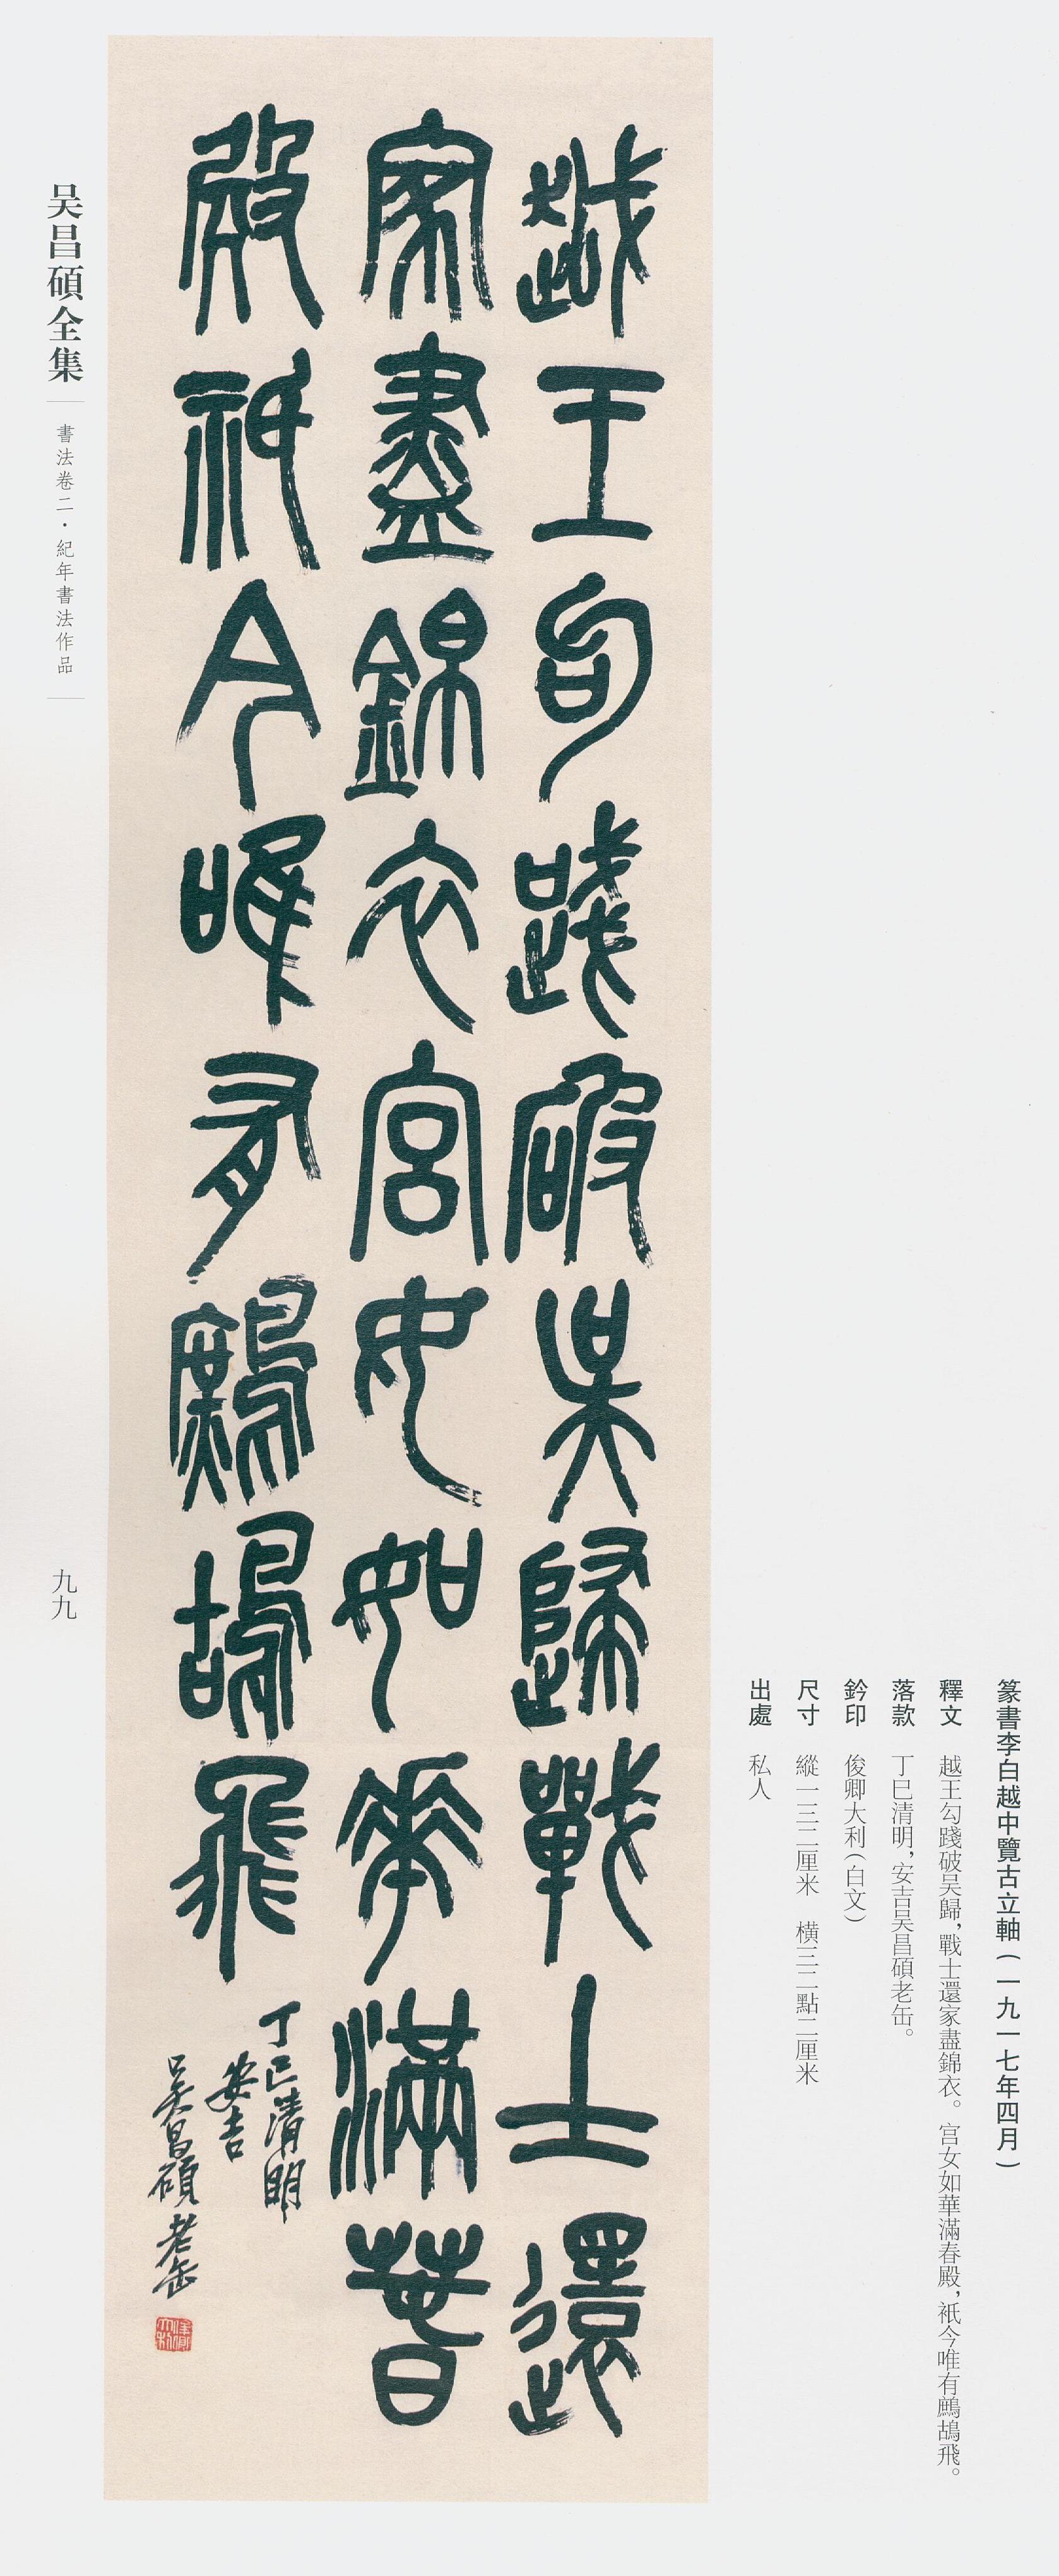 篆書李白越中覽古立軸(一九一七年四月)
釋文 越王勾踐破吴歸,戰士還家盡錦衣。宫女如華滿春殿,祇今唯有鷓鴣飛。
落款 丁巳清明,安吉吴昌碩老缶。
鈐印 俊卿大利(白文)
尺寸 縱一三二厘米 橫三二點二厘米
出處 私人
越王句踐破吴歸戰士還
家盡錦衣宫女如華滿春
殿祇今唯有鷓鴣飛
丁巳清明
安吉
吴昌碩老缶
俊卿大利
吴昌碩全集
書法卷二·紀年書法作品
九九